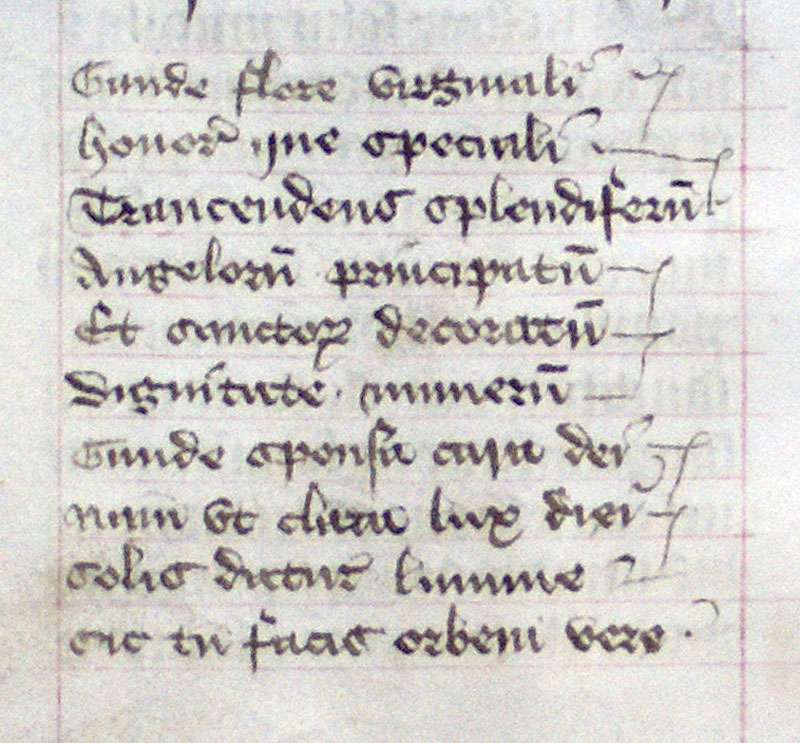 Gaude flore virginali
honor̄ que speciali
Trancendens splendiferū
Angelorū principatū
Et sanctoꝝ decoratū
dignitate . munerū
Gaude sponsa cara dei
nam vt clara lux diei
solis datur lumine
sic tu facis orbem vere .